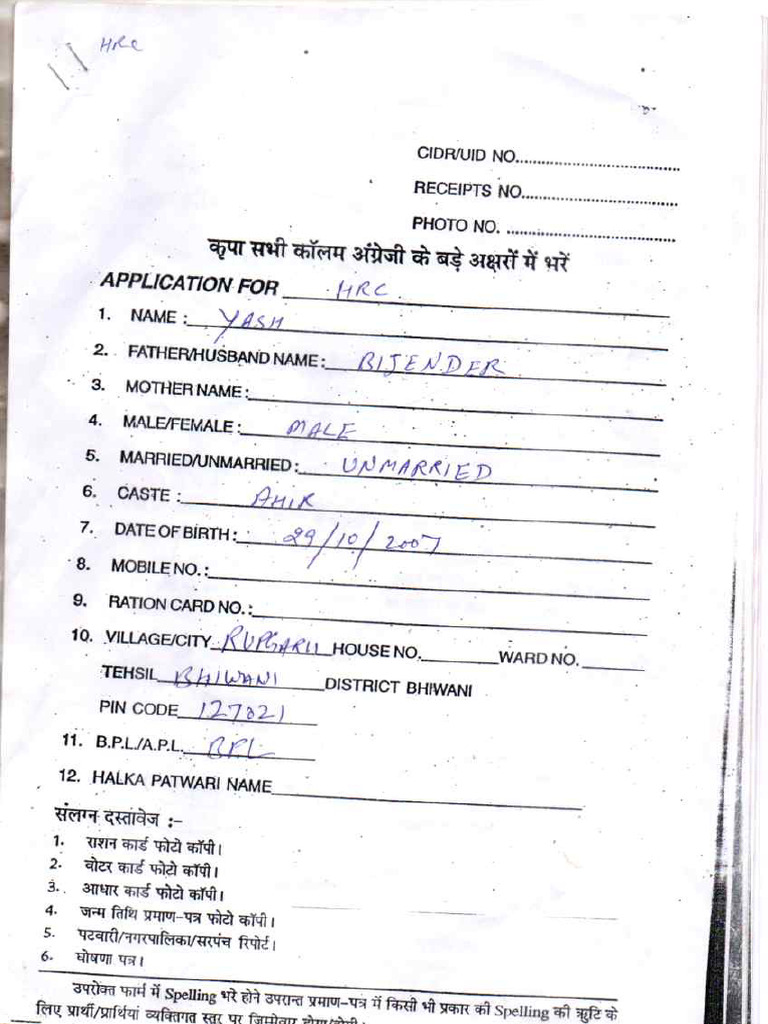 HRC
CIDR/UID NO.................................
RECEIPTS NO................................
PHOTO NO. ..................................
कृपा सभी कॉलम अंग्रेजी के बड़े अक्षरों में भरें
APPLICATION FOR HRC
1. NAME : YASH
2. FATHER/HUSBAND NAME : BIJENDER
3. MOTHER NAME :
4. MALE/FEMALE : MALE
5. MARRIED/UNMARRIED : UNMARRIED
6. CASTE : AHIR
7. DATE OF BIRTH : 29/10/2007
8. MOBILE NO. :
9. RATION CARD NO. :
10. VILLAGE/CITY RUPGARH HOUSE NO. WARD NO.
TEHSIL BHIWANI DISTRICT BHIWANI
PIN CODE 127021
11. B.P.L./A.P.L. BPL
12. HALKA PATWARI NAME
संलग्न दस्तावेज :-
1. राशन कार्ड फोटो कॉपी।
2. वोटर कार्ड फोटो कॉपी।
3. आधार कार्ड फोटो कॉपी।
4. जन्म तिथि प्रमाण-पत्र फोटो कॉपी।
5. पटवारी/नगरपालिका/सरपंच रिपोर्ट।
6. घोषणा पत्र।
उपरोक्त फार्म में Spelling भरे होने उपरान्त प्रमाण-पत्र में किसी भी प्रकार की Spelling की त्रुटि के
लिए प्रार्थी/प्रार्थियां व्यक्तिगत स्तर पर जिम्मेवार होगा/होगी।